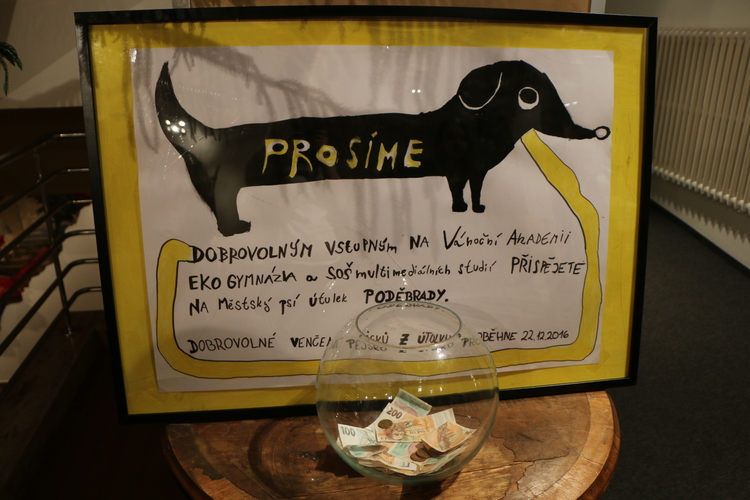 PROSÍME
DOBROVOLNÝM VSTUPNÝM NA Vánoční AKADEMII
EKO GYMNÁZIA a SOŠ multimediálních studií PŘISPĚJETE
NA Městský psí útulek PODĚBRADY.
DOBROVOLNÉ VENČENÍ PEJSKŮ Z ÚTULKU PROBĚHNE 22.12.2016
200
100